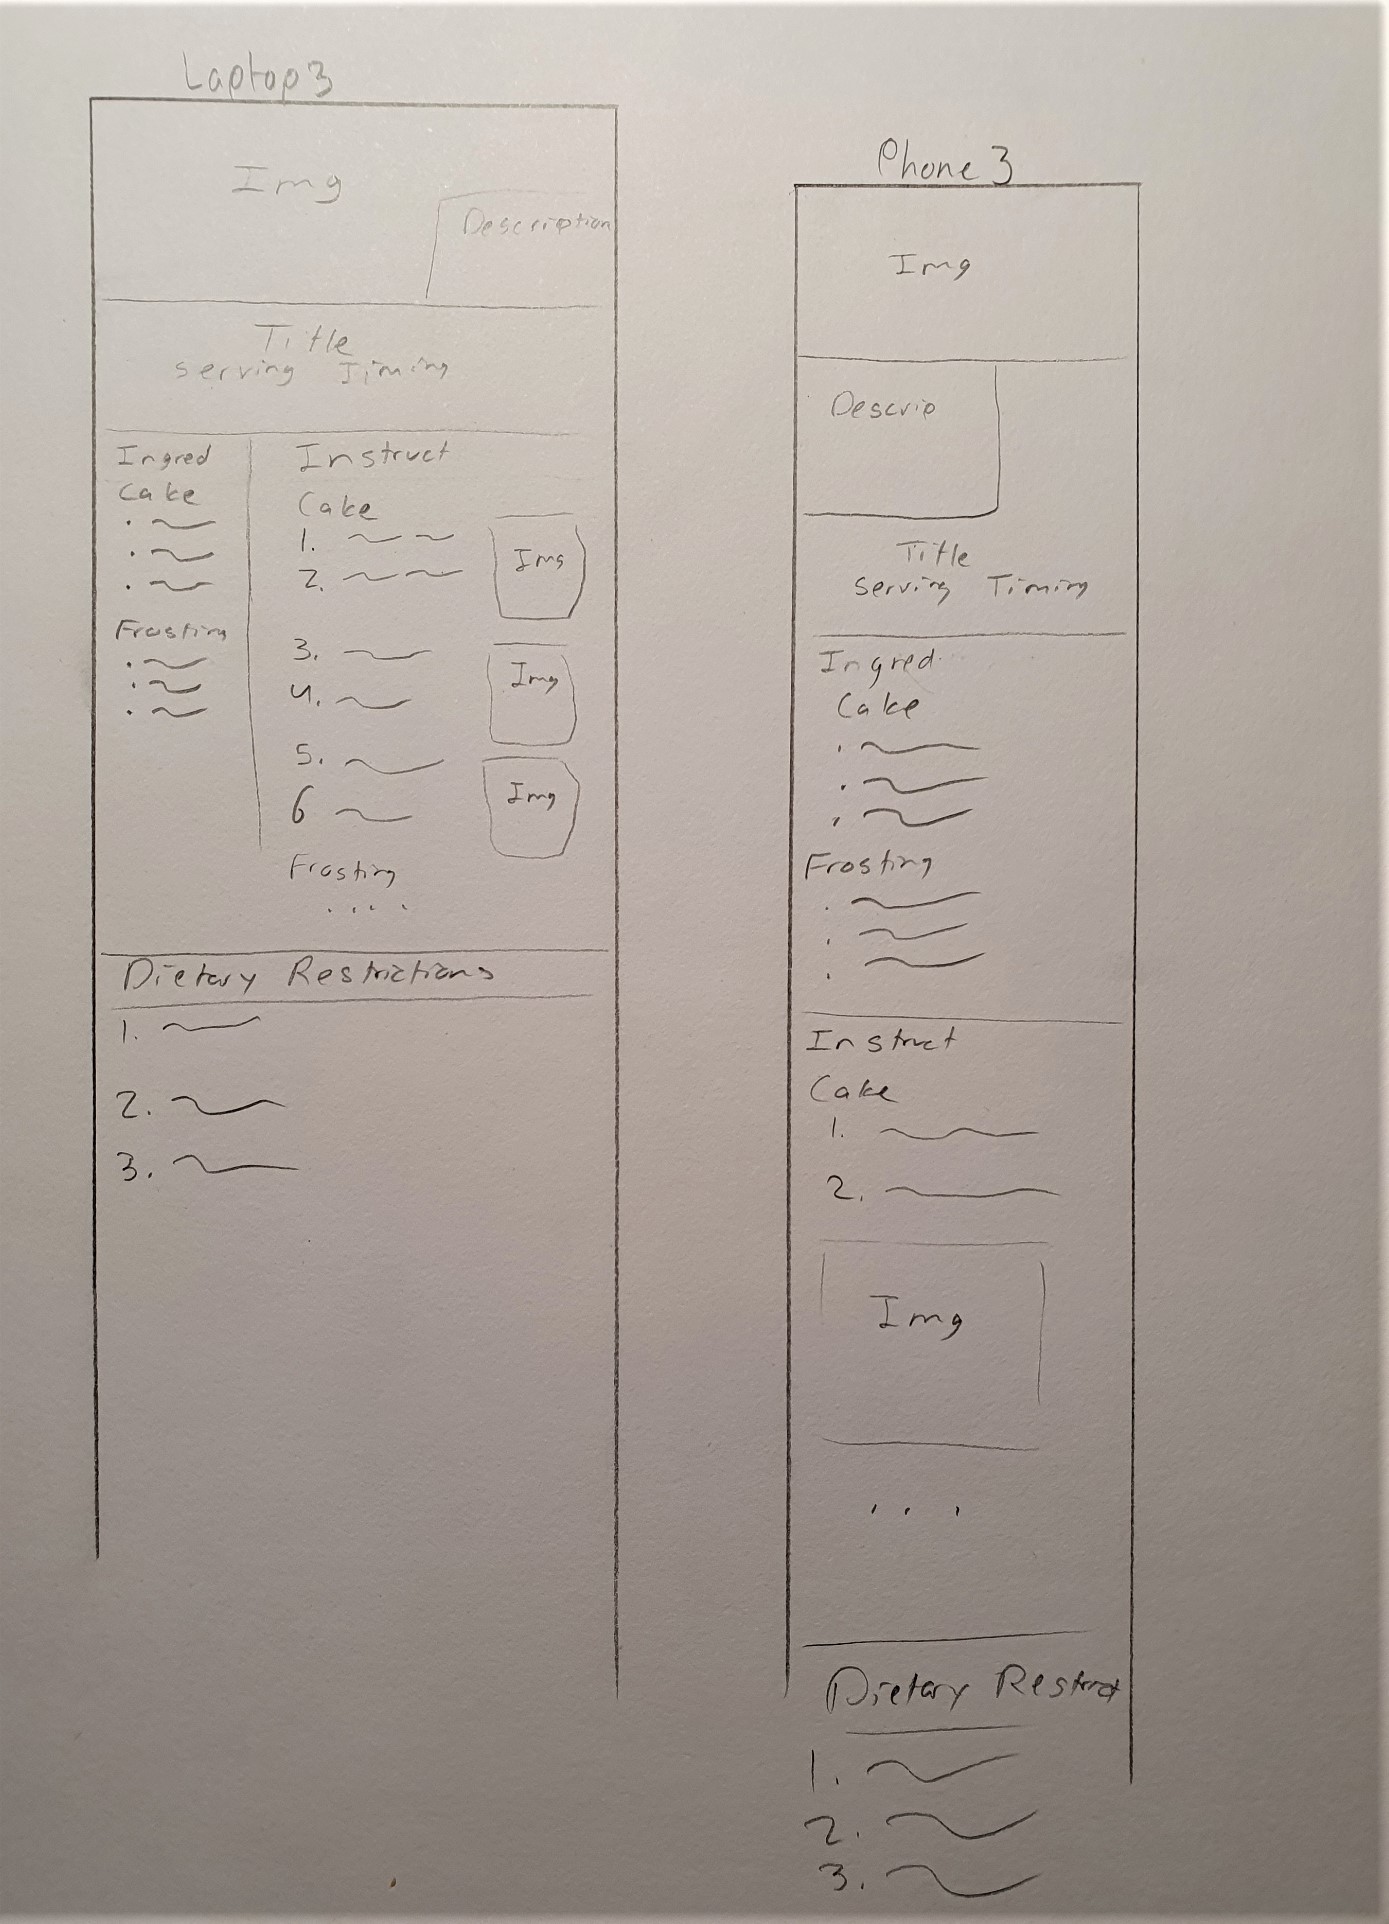 Laptop 3
Img
Description
Title
serving Timing
Ingred
Cake
Frosting
Instruct
Cake
1.
2.
Img
3.
4.
Img
5.
6
Img
Frosting
. . . .
Dietary Restrictions
1.
2.
3.
Phone 3
Img
Descrip
Title
serving Timing
Ingred
Cake
Frosting
Instruct
Cake
1.
2.
Img
. . .
Dietary Restrict
1.
2.
3.